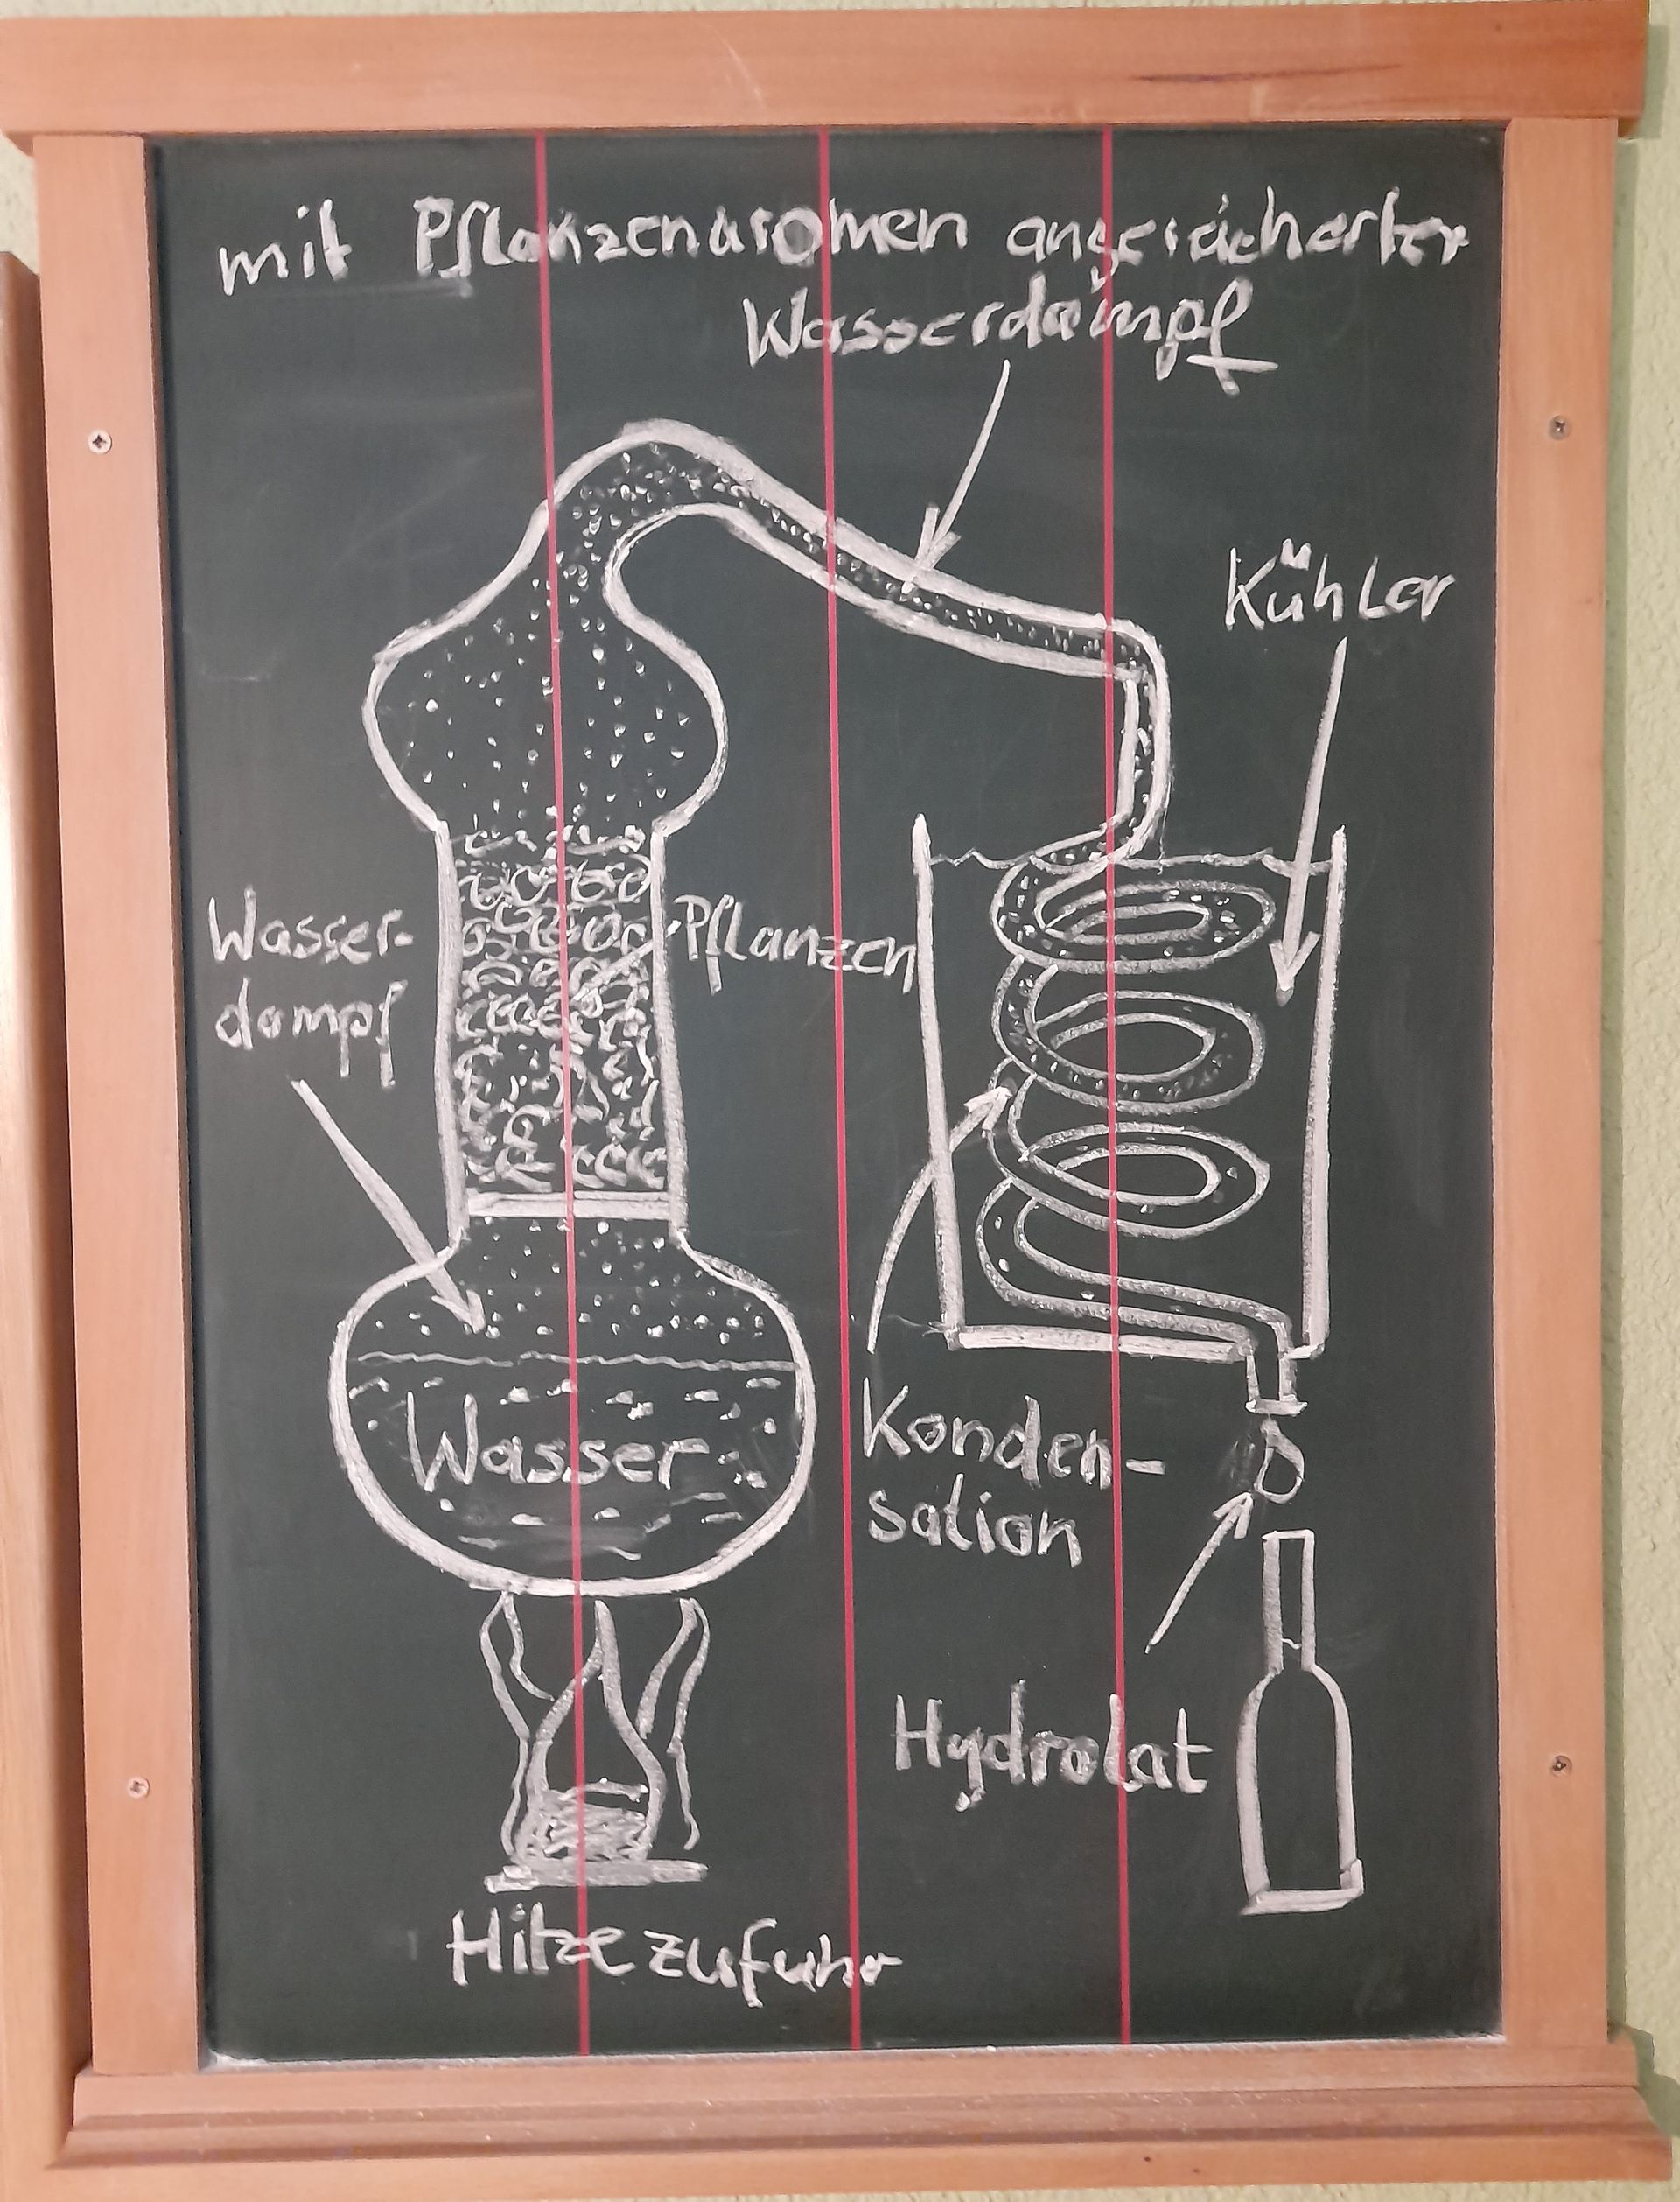 mit Pflanzenaromen angereicherter
Wasserdampf
Kühler
Wasser-
dampf
Pflanzen
Wasser
Konden-
sation
Hydrolat
Hitzezufuhr